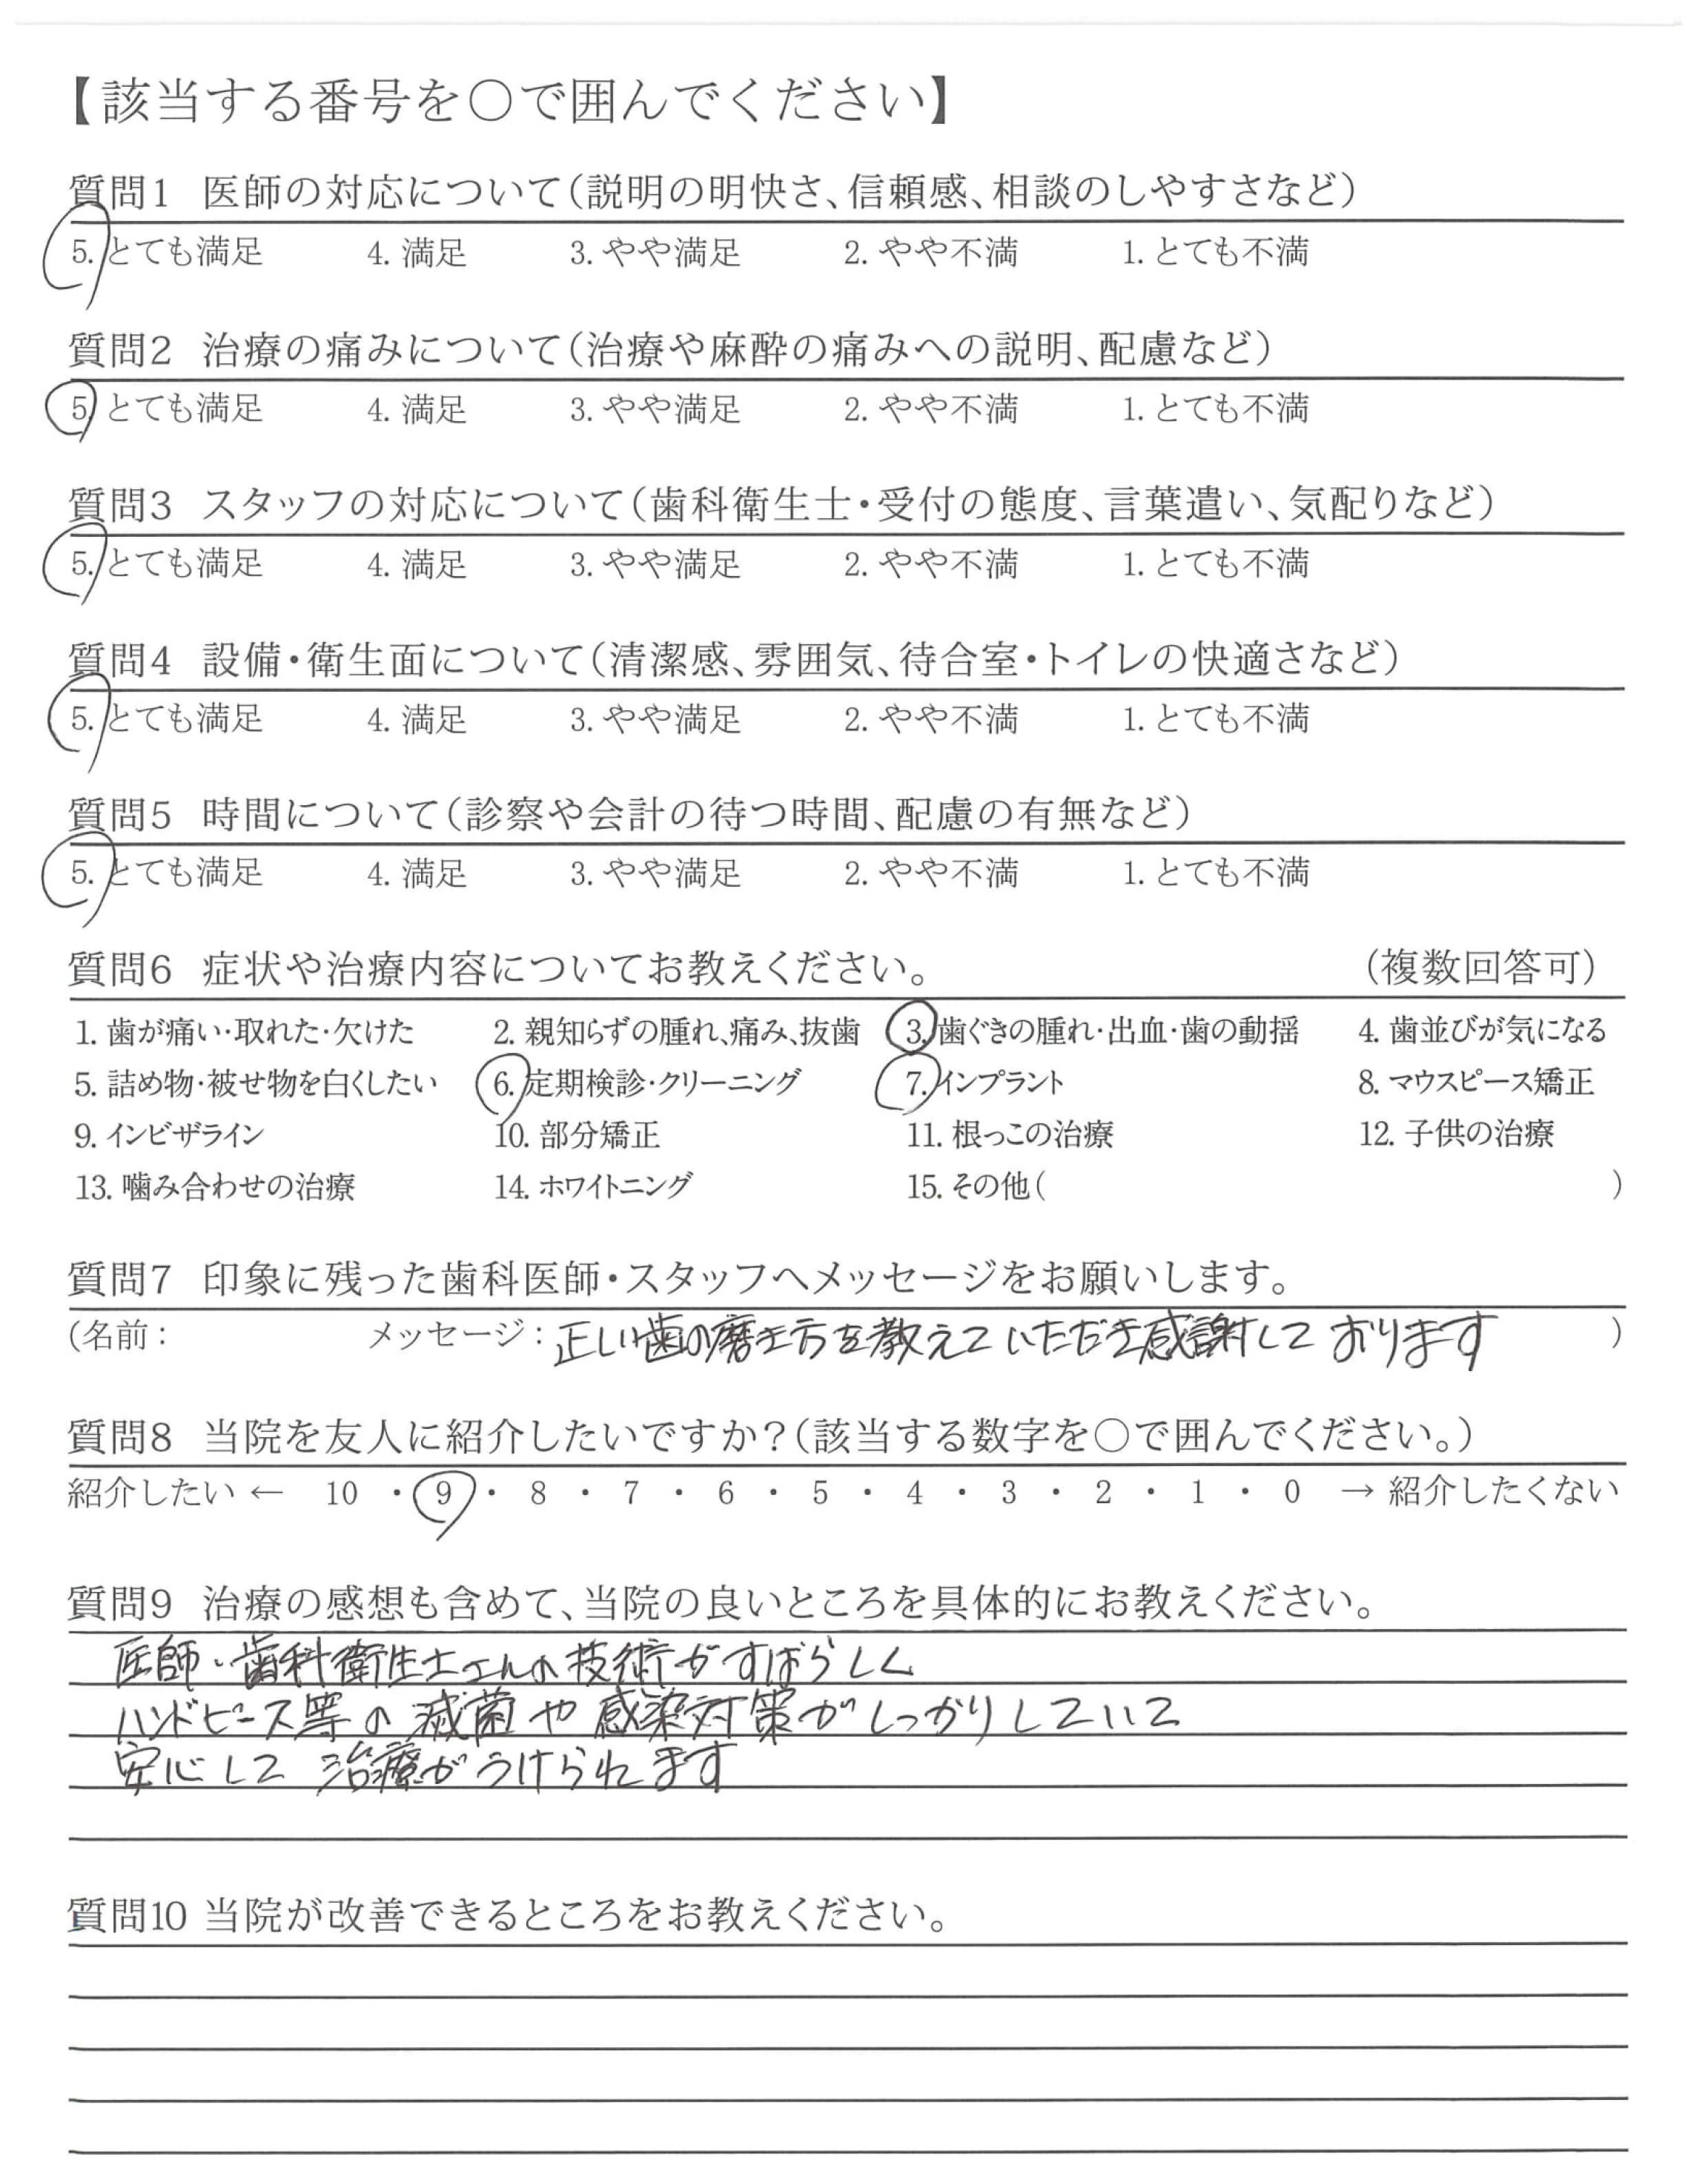 【該当する番号を○で囲んでください】
質問1 医師の対応について(説明の明快さ、信頼感、相談のしやすさなど)
5. とても満足 4. 満足 3. やや満足 2. やや不満 1. とても不満
質問2 治療の痛みについて(治療や麻酔の痛みへの説明、配慮など)
5. とても満足 4. 満足 3. やや満足 2. やや不満 1. とても不満
質問3 スタッフの対応について(歯科衛生士・受付の態度、言葉遣い、気配りなど)
5. とても満足 4. 満足 3. やや満足 2. やや不満 1. とても不満
質問4 設備・衛生面について(清潔感、雰囲気、待合室・トイレの快適さなど)
5. とても満足 4. 満足 3. やや満足 2. やや不満 1. とても不満
質問5 時間について(診察や会計の待つ時間、配慮の有無など)
5. とても満足 4. 満足 3. やや満足 2. やや不満 1. とても不満
質問6 症状や治療内容についてお教えください。 (複数回答可)
1. 歯が痛い・取れた・欠けた 2. 親知らずの腫れ、痛み、抜歯 3. 歯ぐきの腫れ・出血・歯の動揺 4. 歯並びが気になる
5. 詰め物・被せ物を白くしたい 6. 定期検診・クリーニング 7. インプラント 8. マウスピース矯正
9. インビザライン 10. 部分矯正 11. 根っこの治療 12. 子供の治療
13. 噛み合わせの治療 14. ホワイトニング 15. その他( )
質問7 印象に残った歯科医師・スタッフへメッセージをお願いします。
(名前: メッセージ: 正しい歯の磨き方を教えていただき感謝しております )
質問8 当院を友人に紹介したいですか?(該当する数字を○で囲んでください。)
紹介したい ← 10 ・ 9 ・ 8 ・ 7 ・ 6 ・ 5 ・ 4 ・ 3 ・ 2 ・ 1 ・ 0 → 紹介したくない
質問9 治療の感想も含めて、当院の良いところを具体的にお教えください。
医師・歯科衛生士さんの技術がすばらしく
ハンドピース等の滅菌や感染対策がしっかりしていて
安心して治療がうけられます
質問10 当院が改善できるところをお教えください。